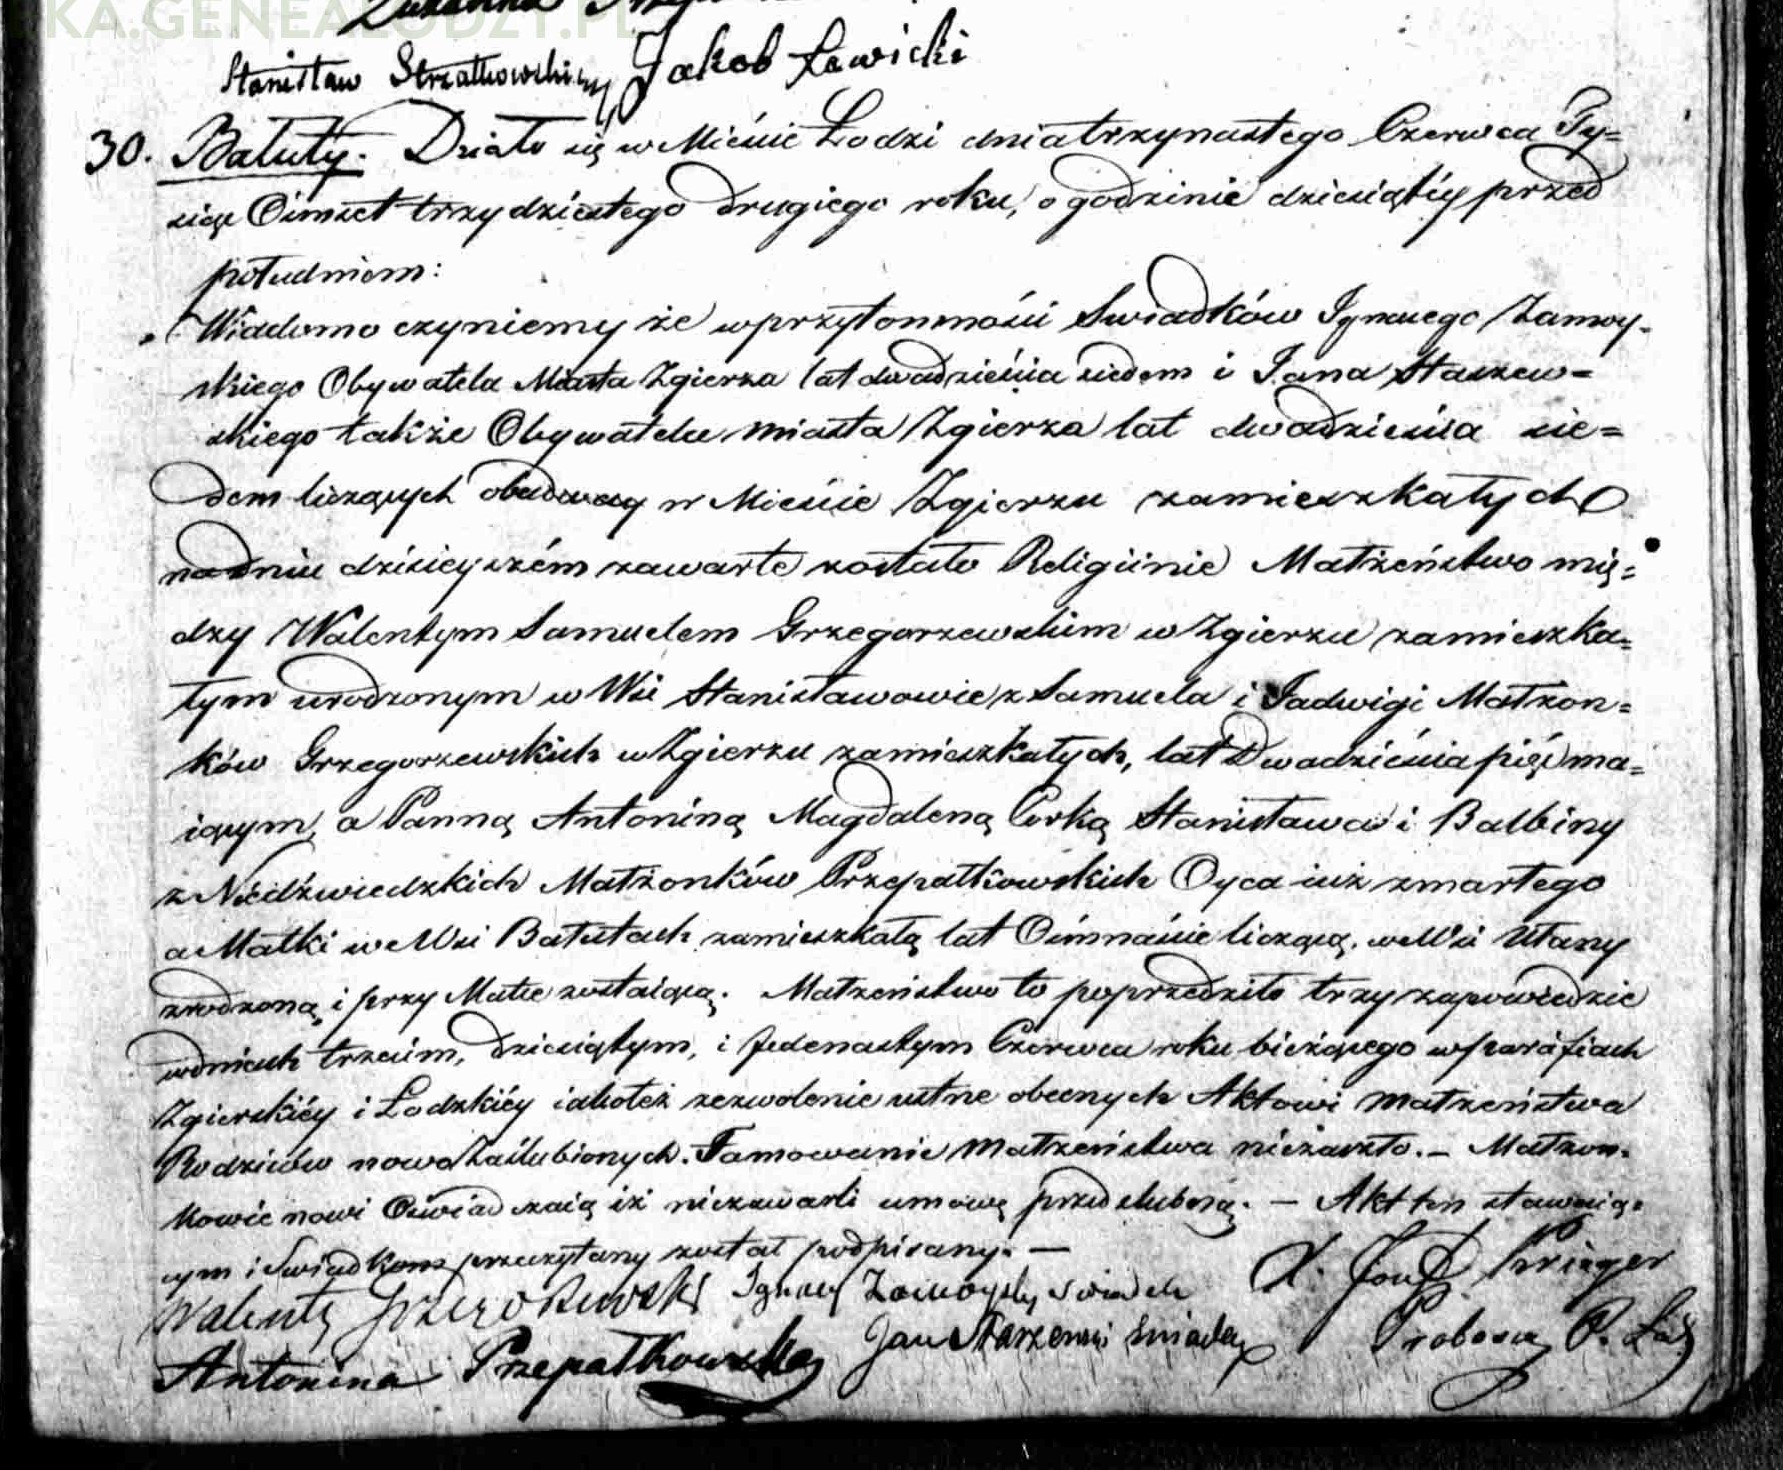 EKA.GENEALODZY.PL
Stanisław Strzałkowski Jakob Ławicki
30. Bałuty. Działo się w Mieście Łodzi dnia trzynastego Czerwca Ty=
siąc Ośmset trzydziestego drugiego roku, o godzinie dziesiątéy przed
południem:
Wiadomo czyniemy że w przytomności Swiadków Ignacego Zamoy-
skiego Obywatela Miasta Zgierza lat dwadzieścia siedem i Jana Staszew=
skiego także Obywatela miasta Zgierza lat dwadzieścia sie=
dem liczących obudwóch w Mieście Zgierzu zamieszkałych
na dniu dzisieyszém zawarte zostało Religiinie Małżeństwo mię=
dzy Walentym Samuelem Grzegorzewskim w Zgierzu zamieszka=
łym urodzonym w Wsi Stanisławowie z Samuela i Jadwigi Małżon=
ków Grzegorzewskich w Zgierzu zamieszkałych, lat Dwadzieścia pięć ma=
iącym, a Panną Antoniną Magdaleną Corką Stanisława i Balbiny
z Niedźwiedzkich Małżonków Przepałkowskich Oyca iuż zmarłego
a Matki we Wsi Bałutach zamieszkałą lat Ośmnaście liczącą, we Wsi Utany
zrodzoną i przy Matce zostaiącą. Małżeństwo to poprzedziło trzy zapowiedzie
w dniach trzecim, dziesiątym, i jedenastym Czerwca roku bieżącego w parafiach
Zgierskiéy i Łodzkiéy iakoteż zezwolenie ustne obecnych Aktowi małżeństwa
Rodziców nowo Zaślubionych. Tamowanie małżeństwa nie zaszło. – Małżon-
kowie nowi Oświadczaią iż nie zawarli umowę przedślubną. – Akt ten stawaią=
cym i Swiadkom przeczytany został podpisany. –
Walenty Grzegorzewski Ignacy Zamoyski swiadek X. Józef Krieger
Antonina Przepałkowska Jan Starzewski swiadek Proboszcz P. Łódz